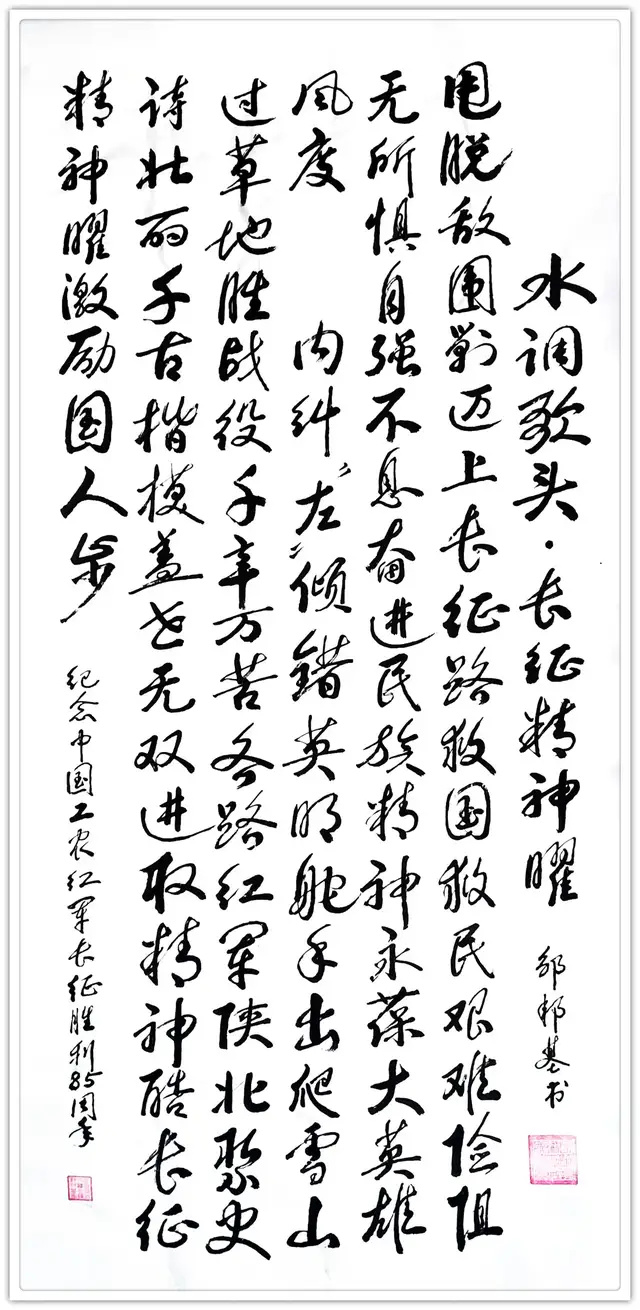 水调歌头·长征精神曜
邹邦基书
甩脱敌围剿迈上长征路救国救民艰难险阻
无所惧自强不息奋进民族精神永葆大英雄
风度 内纠“左”倾错英明舵手出爬雪山
过草地胜战役千辛万苦各路红军陕北聚史
诗壮丽千古楷模盖世无双进取精神酷长征
精神曜激励国人步
纪念中国工农红军长征胜利85周年